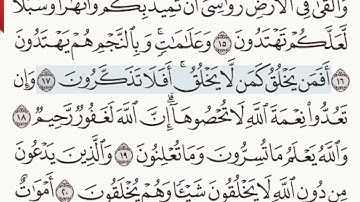 وَأَلْقَىٰ فِي ٱلْأَرْضِ رَوَٰسِيَ أَن تَمِيدَ بِكُمْ وَأَنْهَٰرًا وَسُبُلًا
لَّعَلَّكُمْ تَهْتَدُونَ ١٥ وَعَلَٰمَٰتٍ ۚ وَبِٱلنَّجْمِ هُمْ يَهْتَدُونَ
١٦ أَفَمَن يَخْلُقُ كَمَن لَّا يَخْلُقُ ۗ أَفَلَا تَذَكَّرُونَ ١٧ وَإِن
تَعُدُّوا۟ نِعْمَةَ ٱللَّهِ لَا تُحْصُوهَآ ۗ إِنَّ ٱللَّهَ لَغَفُورٌ رَّحِيمٌ
١٨ وَٱللَّهُ يَعْلَمُ مَا تُسِرُّونَ وَمَا تُعْلِنُونَ ١٩ وَٱلَّذِينَ يَدْعُونَ
مِن دُونِ ٱللَّهِ لَا يَخْلُقُونَ شَيْـًٔا وَهُمْ يُخْلَقُونَ ٢٠ أَمْوَٰتٌ